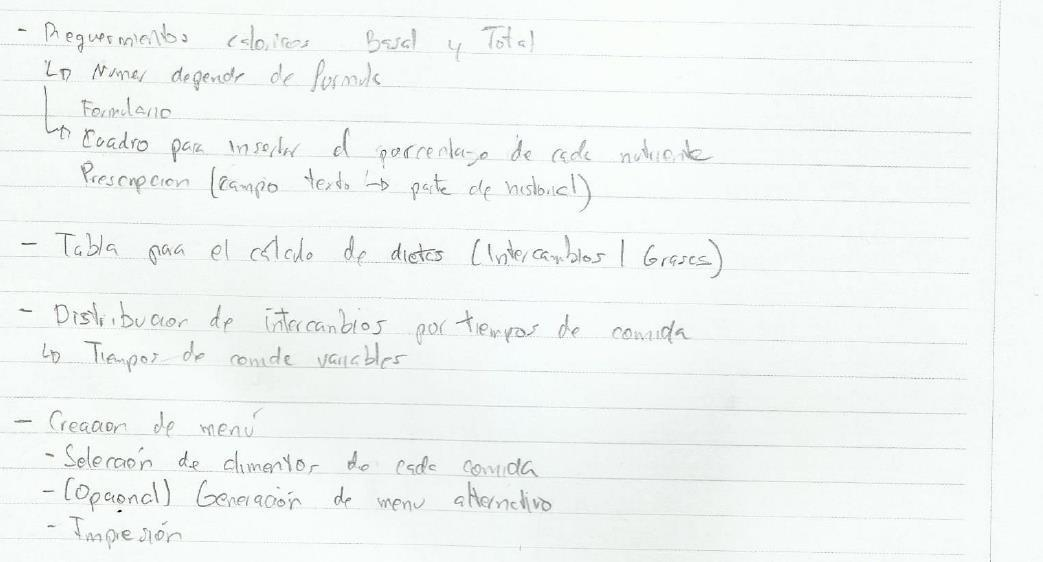 - Requermientos calóricos Basal y Total
↳ Numer depende de formula
Formulario
↳ Cuadro para insertar el porcentaje de cada nutriente
Prescripcion (campo texto ↳ parte de historial)
- Tabla para el cálculo de dietas (Intercambios / Grasas)
- Distribucion de intercambios por tiempos de comida
↳ Tiempos de comida variables
- Creacion de menú
- Selección de alimentos de cada comida
- (Opcional) Generación de menu alternativo
- Impresión